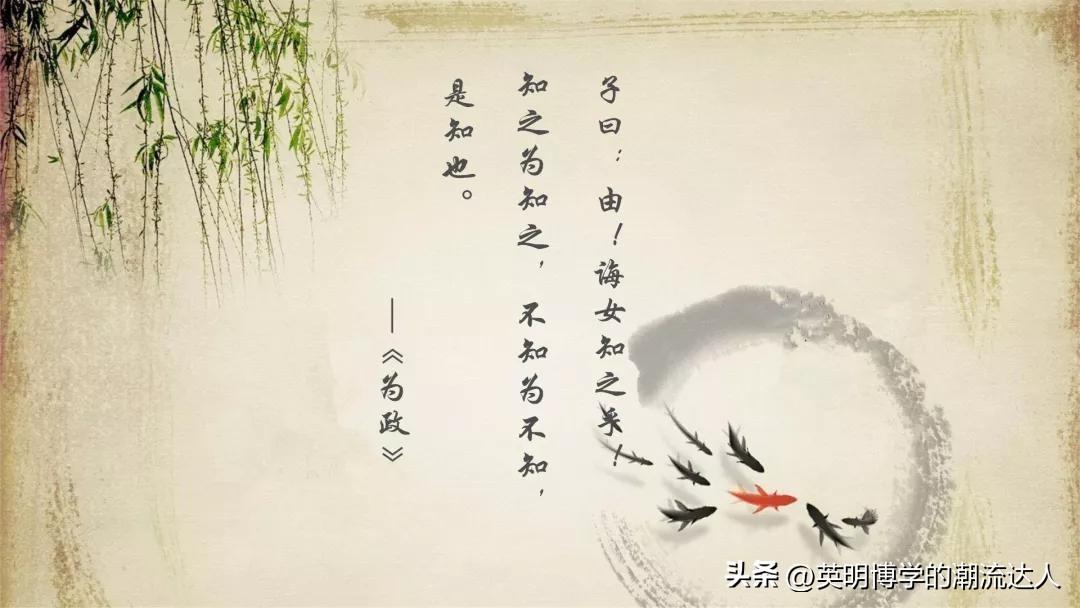 子曰：由！诲女知之乎！
知之为知之，不知为不知，
是知也。
—《为政》
头条 @英明博学的潮流达人